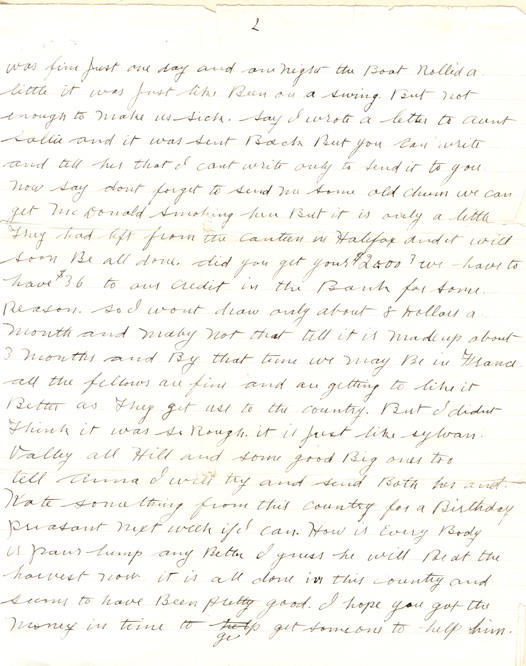 2
was fine Just one day and one night the Boat Rolled a
little it was Just like Been on a swing But not
enough to make us sick. Say I wrote a letter to aunt
Sallie and it was sent Back But you can write
and tell her that I cant write only to send it to you
now say dont forget to send me some old chum we can
get McDonald smoking here But it is only a little
They had left from the canteen in Halifax and it will
soon Be all done. did you get your $2000? we have to
have $36 to our credit in the Bank for some
Reason. so I wont draw only about 8 Dollars a
month and maby not that tell it is made up about
3 months and By that time we may Be in France
all the fellows are fine and are getting to like it
Better as They get use to the country. But I didnt
Think it was so Rough. it is Just like sylvan
Valley all Hill and some good Big ones too
tell Anna I will try and send Both her and
Kate something from this country for a Birthday
preasant next week if I can. How is Every Body
is paw's lump any Better I guess he will Be at the
harvest now it is all done in this country and
seems to have Been pretty good. I hope you got the
money in time to help get someone to help him.